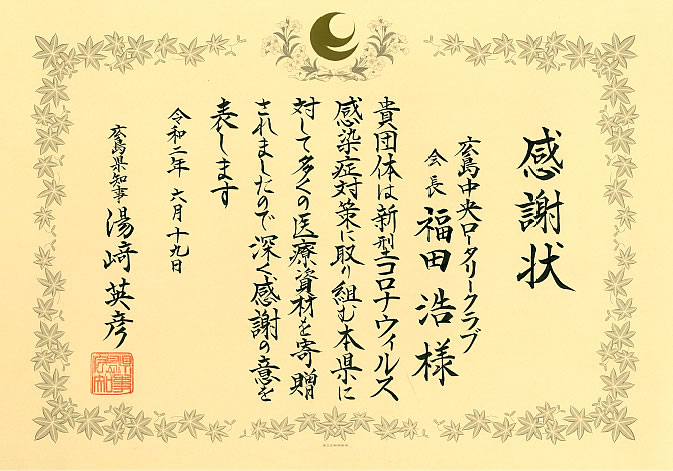 感謝状
広島中央ロータリークラブ
会長 福田 浩 様
貴団体は新型コロナウィルス
感染症対策に取り組む本県に
対して多くの医療資材を寄贈
されましたので深く感謝の意を
表します
令和二年 六月 十九日
広島県知事 湯﨑 英彦